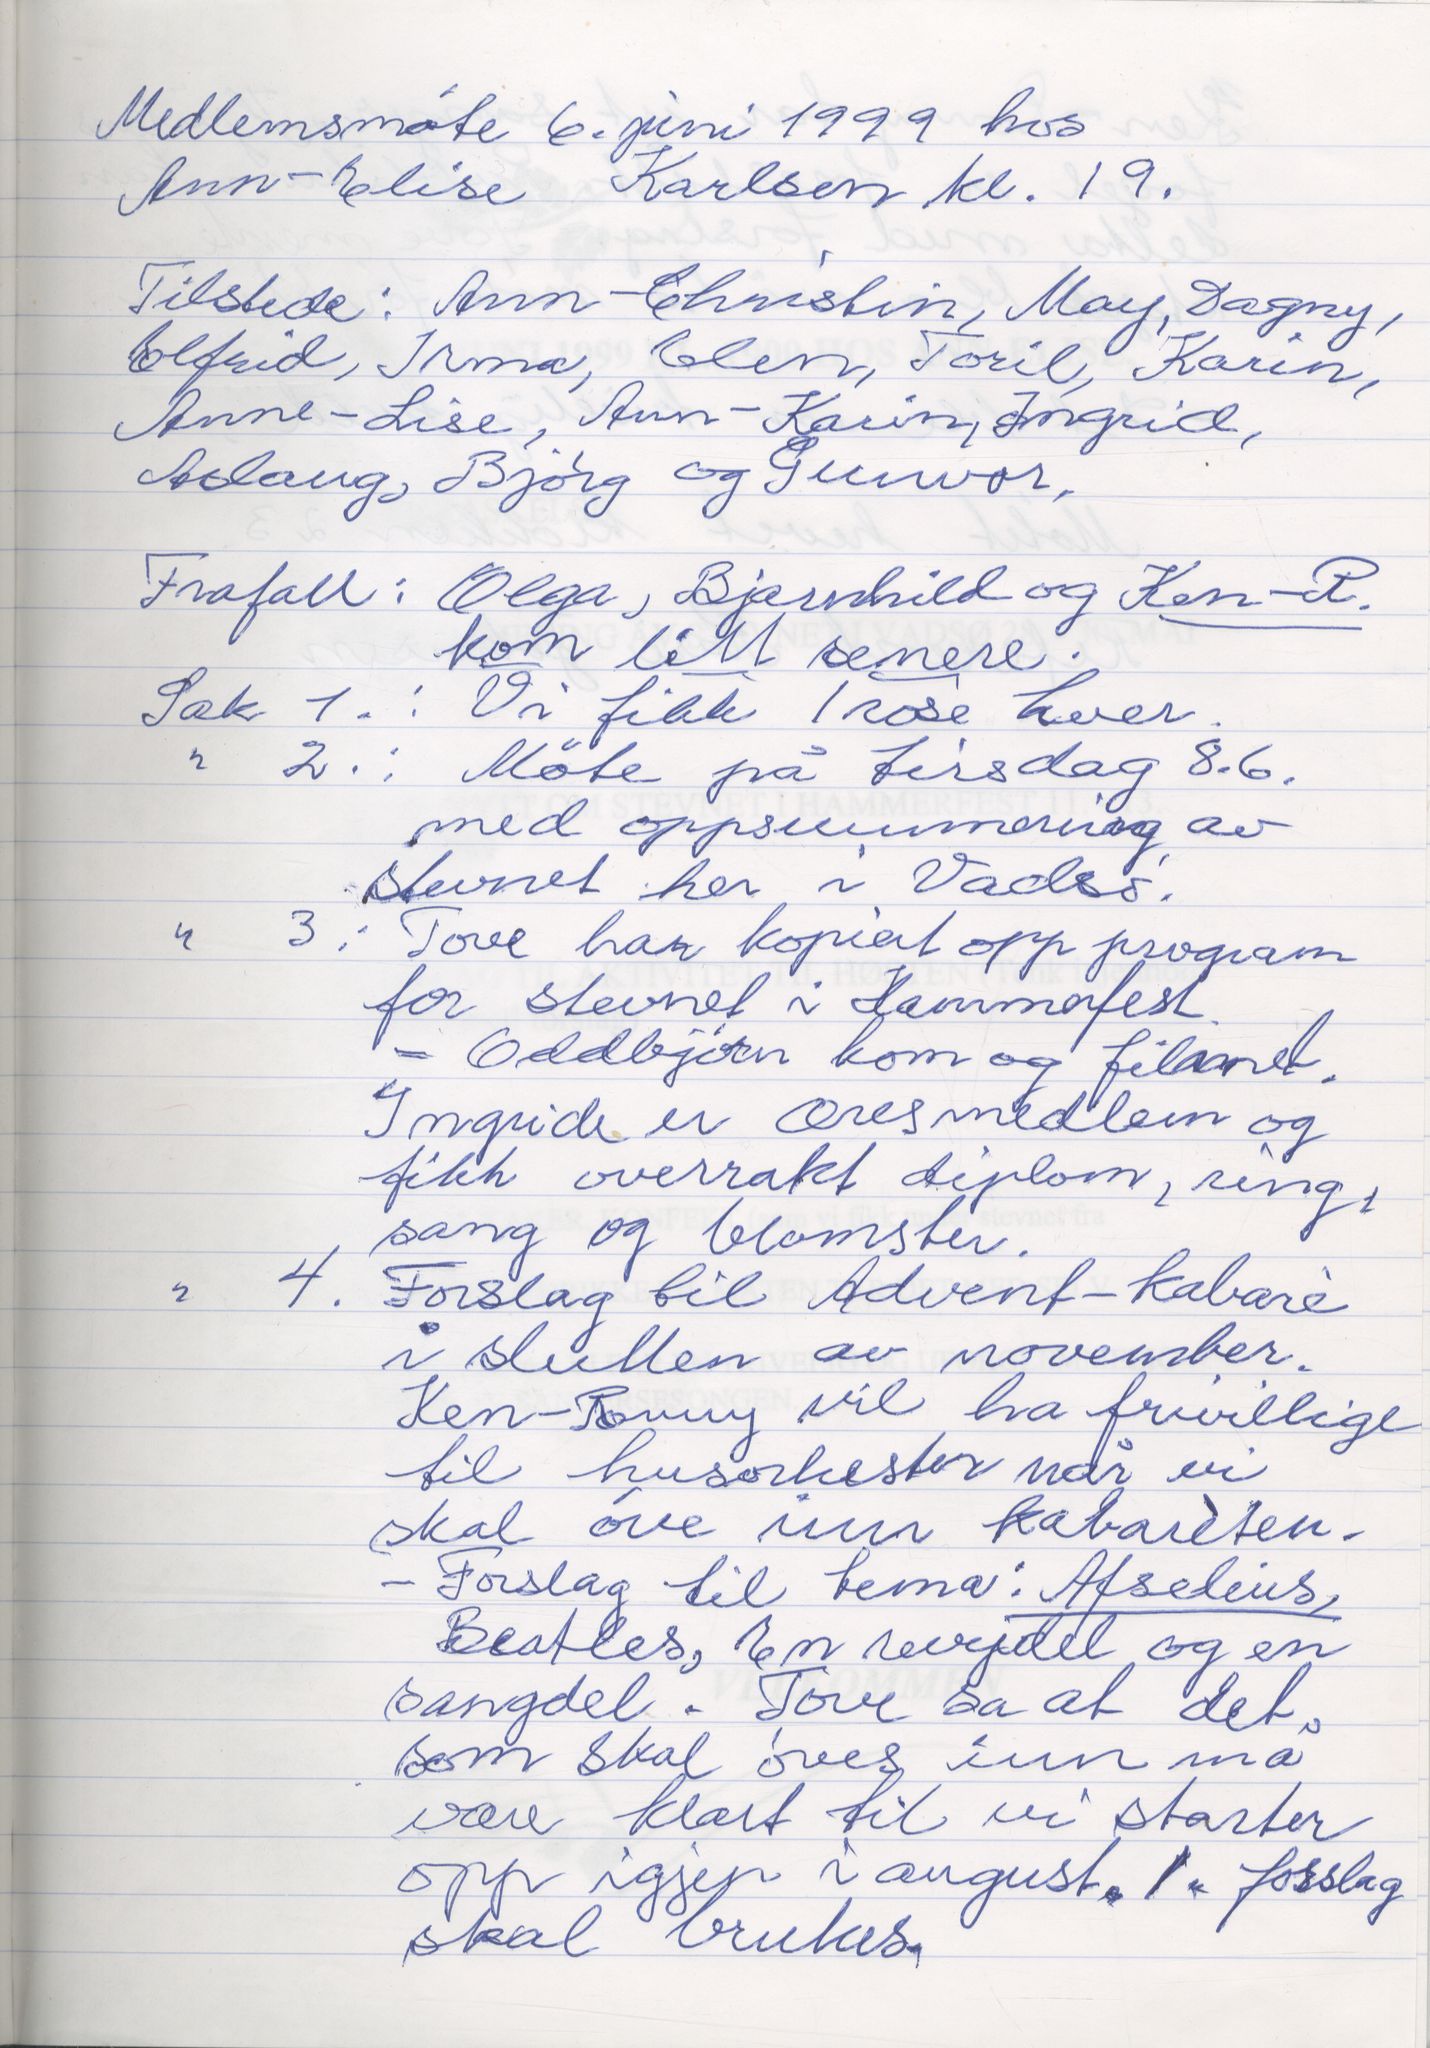 Medlemsmöte 6. juni 1999 hos
Ann-Elise Karlsen kl. 19.
Tilstede: Ann-Christin, May, Dagny,
Elfrid, Irma, Elen, Toril, Karin,
Anne-Lise, Ann-Karin, Ingrid,
Aslaug, Björg og Gunvor.
Frafall: Olga, Bjarnhild og Ken-R.
kom litt senere.
Sak 1.: Vi fikk 1 rose hver.
" 2.: Möte på tirsdag 8.6.
med oppsummering av
stevnet her i Vadsö.
" 3: Tove har kopiert opp program
for stevnet i Hammerfest.
- Oddbjörn kom og filmet.
Ingrid er æresmedlem og
fikk overrakt diplom, ring,
sang og blomster.
" 4. Forslag til Advent-kabarè
i slutten av november.
Ken-Ronny vil ha frivillige
til husorkester når vi
skal öve inn kabarèten.
- Forslag til tema: Afselius,
Beatles, En revydel og en
sangdel. Tove sa at det
som skal öves inn må
være klart til vi starter
opp igjen i august. 1. forslag
skal brukes.